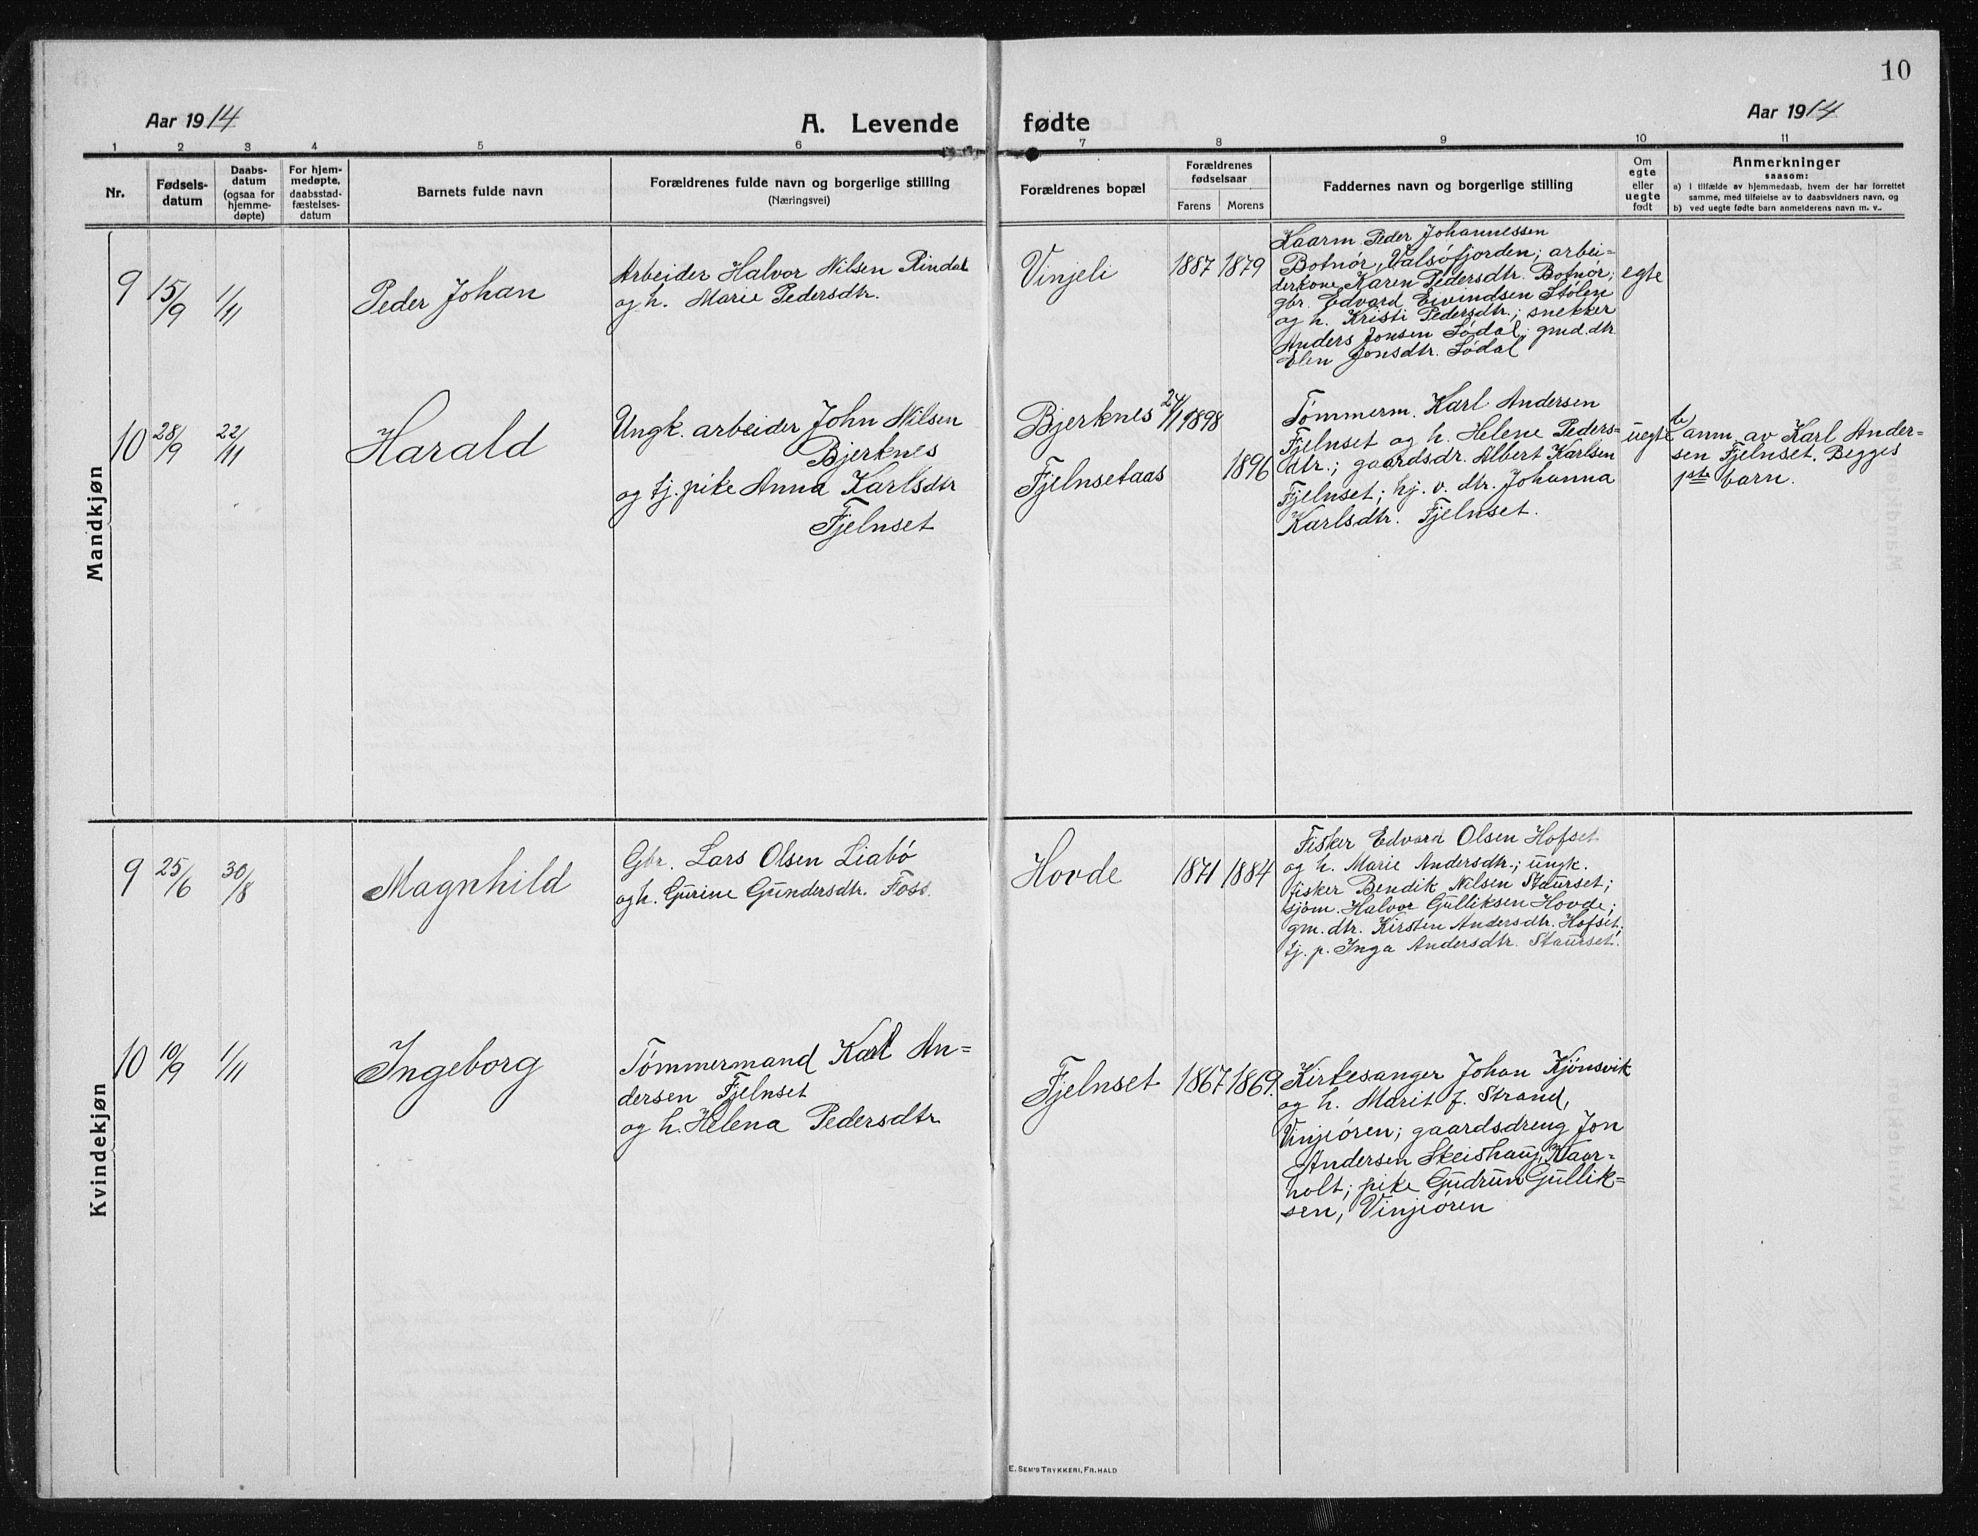 10
Aar 1914
A. Levende
fødte
Aar 1914
1 2 3 4 5 6 7 8 9 10 11
Nr.
Fødsels-
datum
Daabs-
datum
(ogsaa for
hjemme-
døpte)
For hjem-
medøpte,
daabsstad-
fæstelses-
datum
Barnets fulde navn
Forældrenes fulde navn og borgerlige stilling
(Næringsvei)
Forældrenes bopæl
Forældrenes
fødselsaar
Farens Morens
Faddernes navn og borgerlige stilling
Om
egte
eller
uegte
født
Anmerkninger
saasom:
a) i tilfælde av hjemmedaab, hvem der har forrettet
samme, med tilføielse av to daabsvidners navn, og
b) ved uegte fødte barn anmelderens navn m. v..
Mandkjøn
9
15/9
1/11
Peder Johan
Arbeider Halvor Nilsen Rindal
og h. Marie Pedersdtr.
Vinjeli
1887 1879
Kaarm. Peder Johannessen
Botnör, Valsöfjorden; arbei-
derkone Karen Pedersdtr. Botnör;
gbr. Edvard Eivindsen Stölen
og h. Kristi Pedersdtr.; snekker
Anders Jonsen Södal; gmd. dtr.
Elen Jonsdtr. Södal
egte
10
28/9
22/11
Harald
Ungk. arbeider John Nilsen
Bjerknes
og tj. pike Anna Karlsdtr
Fjelnset
Bjerknes
Fjelnsetaas
24/11 1898
1896
Tömmerm. Karl Andersen
Fjelnset og h. Helene Peders-
dtr.; gaardsdr. Albert Karlsen
Fjelnset; hj. v. dtr. Johanna
Karlsdtr. Fjelnset.
uegte
b
anm. av Karl Ander-
sen Fjelnset. Begges
1ste barn.
Kvindekjøn
9
25/6
30/8
Magnhild
Gbr. Lars Olsen Liabö
og h. Gurine Gundersdtr. Foss.
Hovde
1871 1884
Fisker Edvard Olsen Hofset
og h. Marie Andersdtr.; ungk.
fisker Bendik Nilsen Staurset;
sjöm. Halvor Gulliksen Hovde;
gm. dtr. Kirsten Andersdtr. Hofset;
tj. p. Inga Andersdtr. Staurset.
10
10/9
1/11
Ingeborg
Tömmermand Karl An-
dersen Fjelnset
og h. Helena Pedersdtr
Fjelnset
1867 1869.
Kirkesanger Johan Kjönsvik
og h. Marit f. Strand,
Vinjeören; gaardsdreng Jon
Andersen Skeishaug, Kaar-
holt; pike Gudrun Gullik-
sen, Vinjeören
E. SEM'S TRYKKERI, FR.HALD